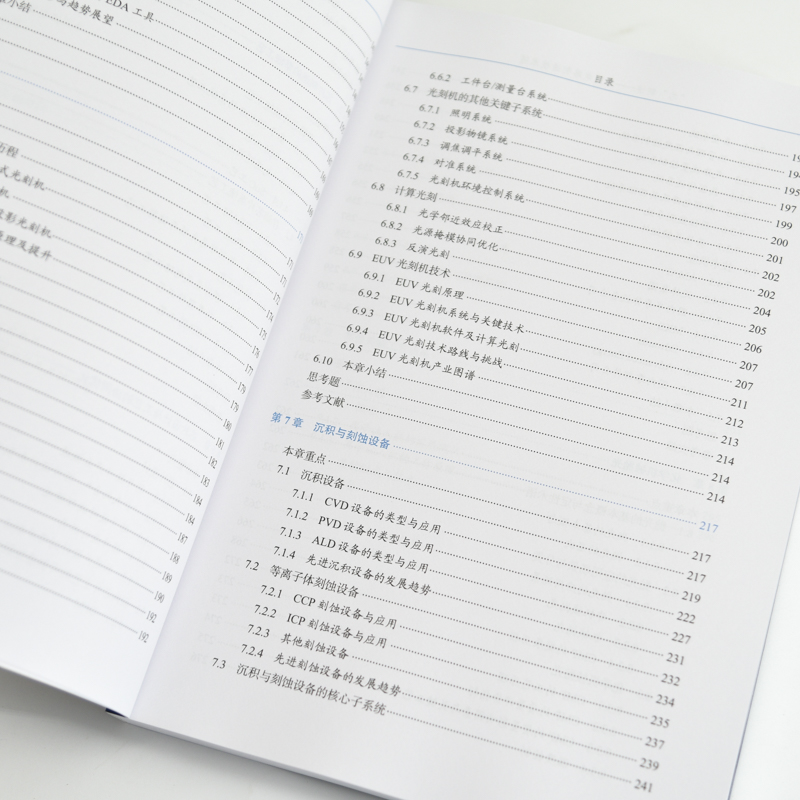 EDA 工具
与趋势展望
章小结
历程
式光刻机
机
投影光刻机
原理及提升
179
179
180
181
182
183
184
184
187
188
189
190
192
192
目录
6.6.2 工件台/测量台系统
6.7 光刻机的其他关键子系统
6.7.1 照明系统 194
6.7.2 投影物镜系统 195
6.7.3 调焦调平系统 197
6.7.4 对准系统 199
6.7.5 光刻机环境控制系统 200
6.8 计算光刻 201
6.8.1 光学邻近效应校正 202
6.8.2 光源掩模协同优化 202
6.8.3 反演光刻 204
6.9 EUV 光刻机技术 205
6.9.1 EUV 光刻原理 206
6.9.2 EUV 光刻机系统与关键技术 207
6.9.3 EUV 光刻机软件及计算光刻 207
6.9.4 EUV 光刻技术路线与挑战 211
6.9.5 EUV 光刻机产业图谱 212
6.10 本章小结 213
思考题 214
参考文献 214
第 7 章 沉积与刻蚀设备 217
本章重点 217
7.1 沉积设备 217
7.1.1 CVD 设备的类型与应用 219
7.1.2 PVD 设备的类型与应用 222
7.1.3 ALD 设备的类型与应用 227
7.1.4 先进沉积设备的发展趋势 231
7.2 等离子体刻蚀设备 232
7.2.1 CCP 刻蚀设备与应用 234
7.2.2 ICP 刻蚀设备与应用 235
7.2.3 其他刻蚀设备 237
7.2.4 先进刻蚀设备的发展趋势 239
7.3 沉积与刻蚀设备的核心子系统 241